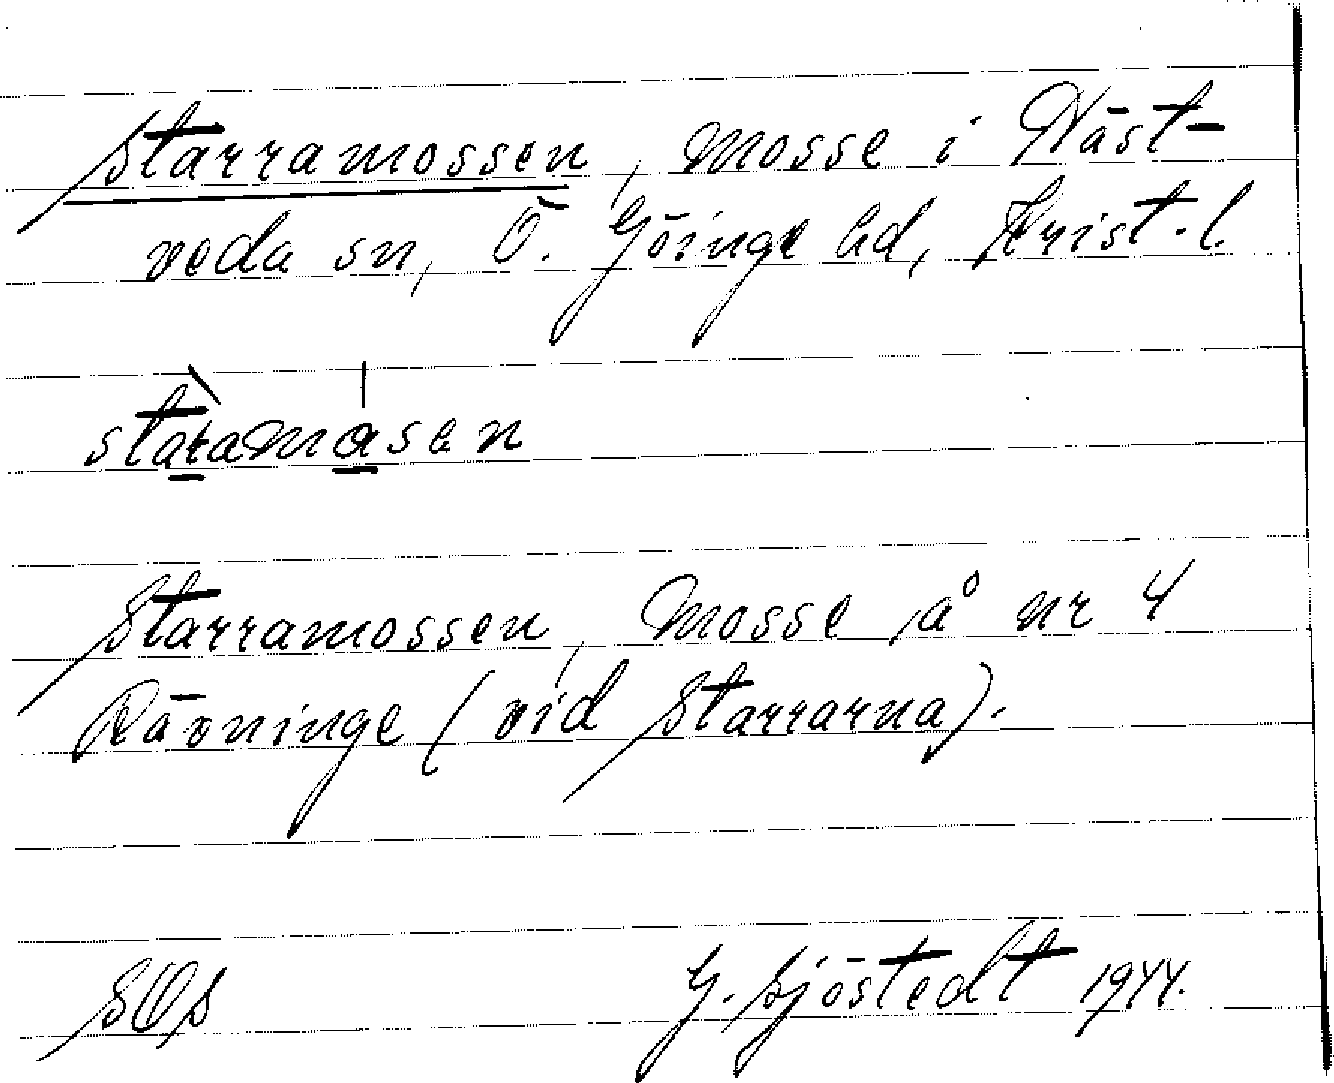 Starramossen, mosse i Näst-
veda sn, Ö. Göinge hd, Krist. l.
staramåsen
Starramossen, Mosse å nr 4
Rävninge (vid Starrarna).
SOS G. Sjöstedt 1944.